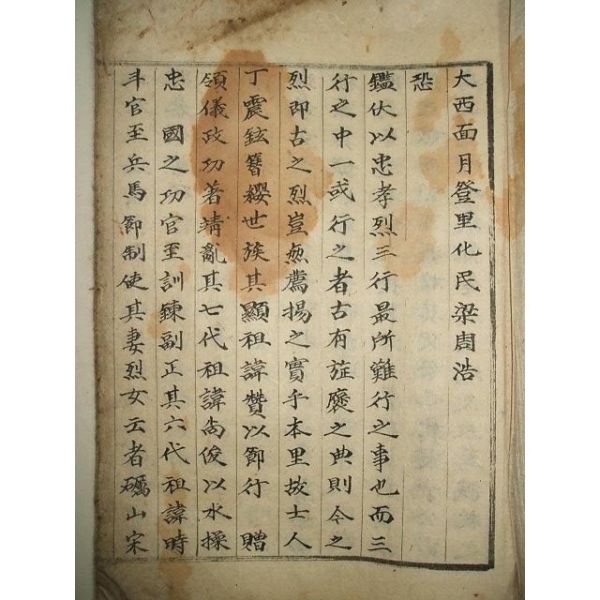 大西面月登里化民梁周浩
恐
鑑伏以忠孝烈三行最所難行之事也而三
行之中一或行之者古有旌褒之典則今之
烈即古之烈豈無薦揚之實乎本里故士人
丁震鉉簪纓世族其顯祖諱贊以節行 贈
領儀政功著靖亂其七代祖諱尚俊以水操
忠 國之功官至訓鍊副正其六代祖諱時
斗官至兵馬節制使其妻烈女云者礪山宋